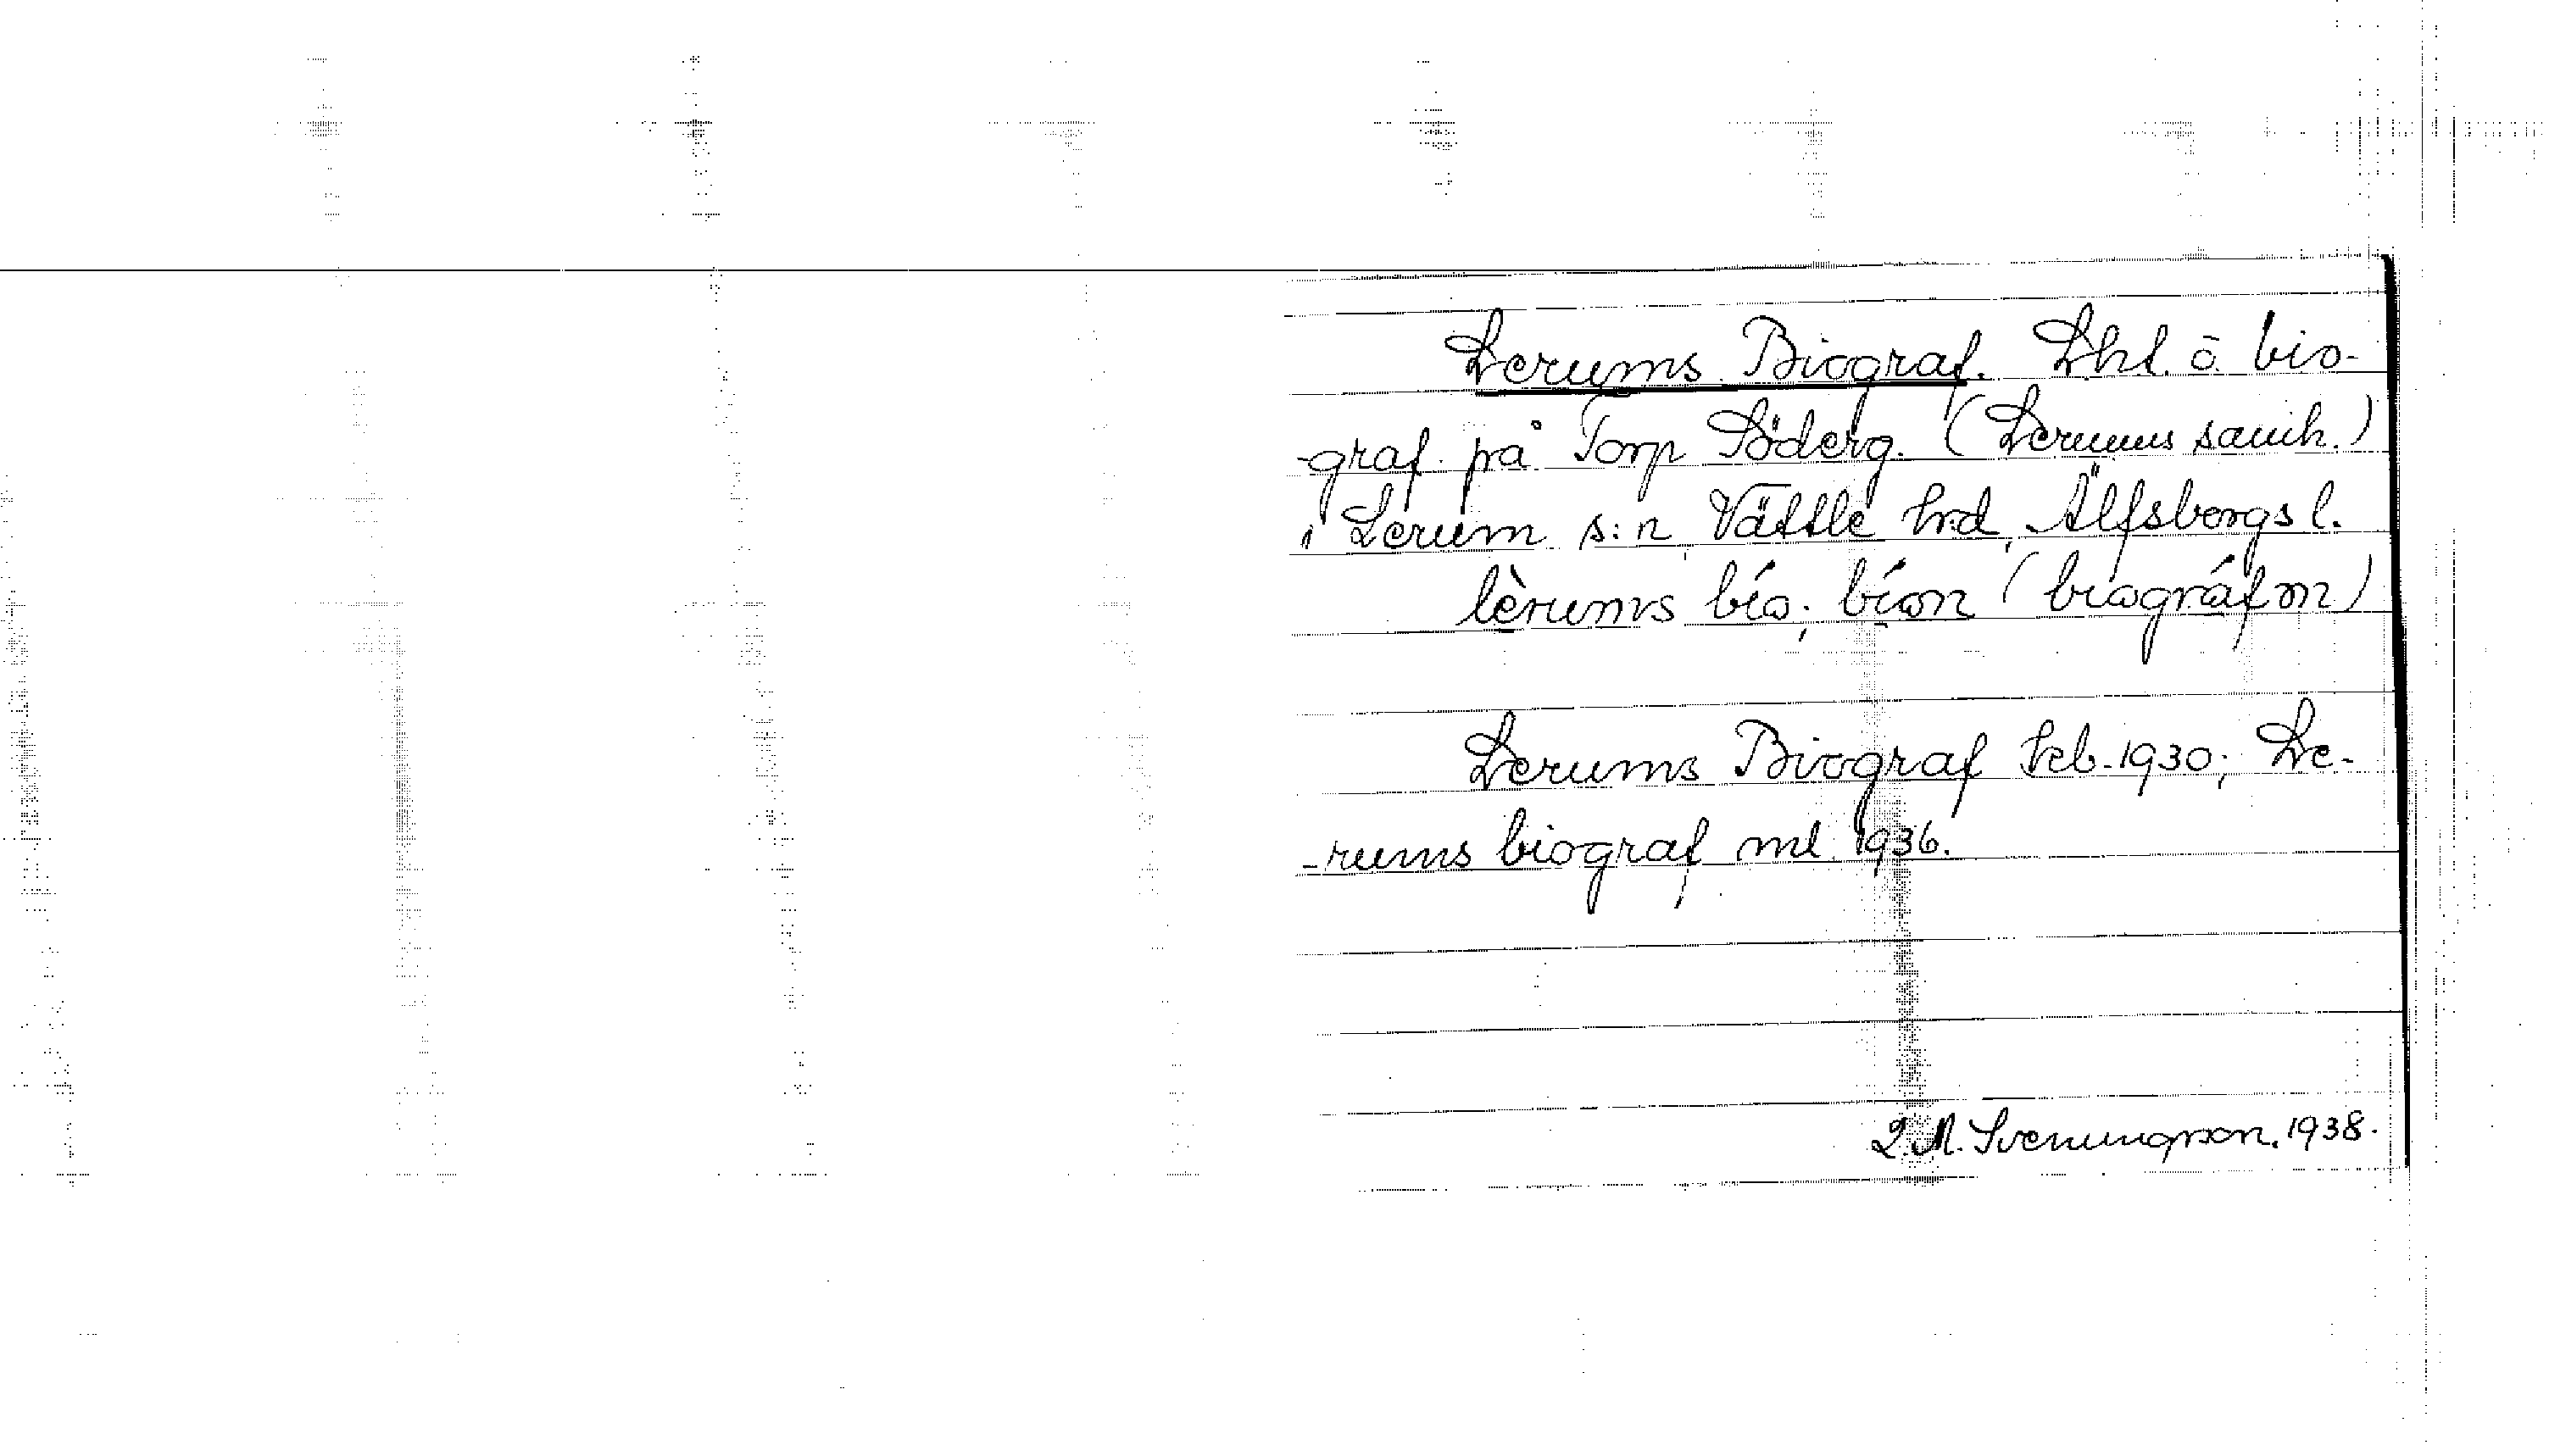 Lerums Biograf. Lht. ō. bio-
-graf. på Torp Söderg. (Lerums samh.)
i Lerum s:n, Vättle hrd, Älfsborgs l.
lèrums bío; bíon (biográfm)
Lerums Biograf feb. 1930; Le-
-rums biograf ml 1936.
M. Svenungson. 1938.